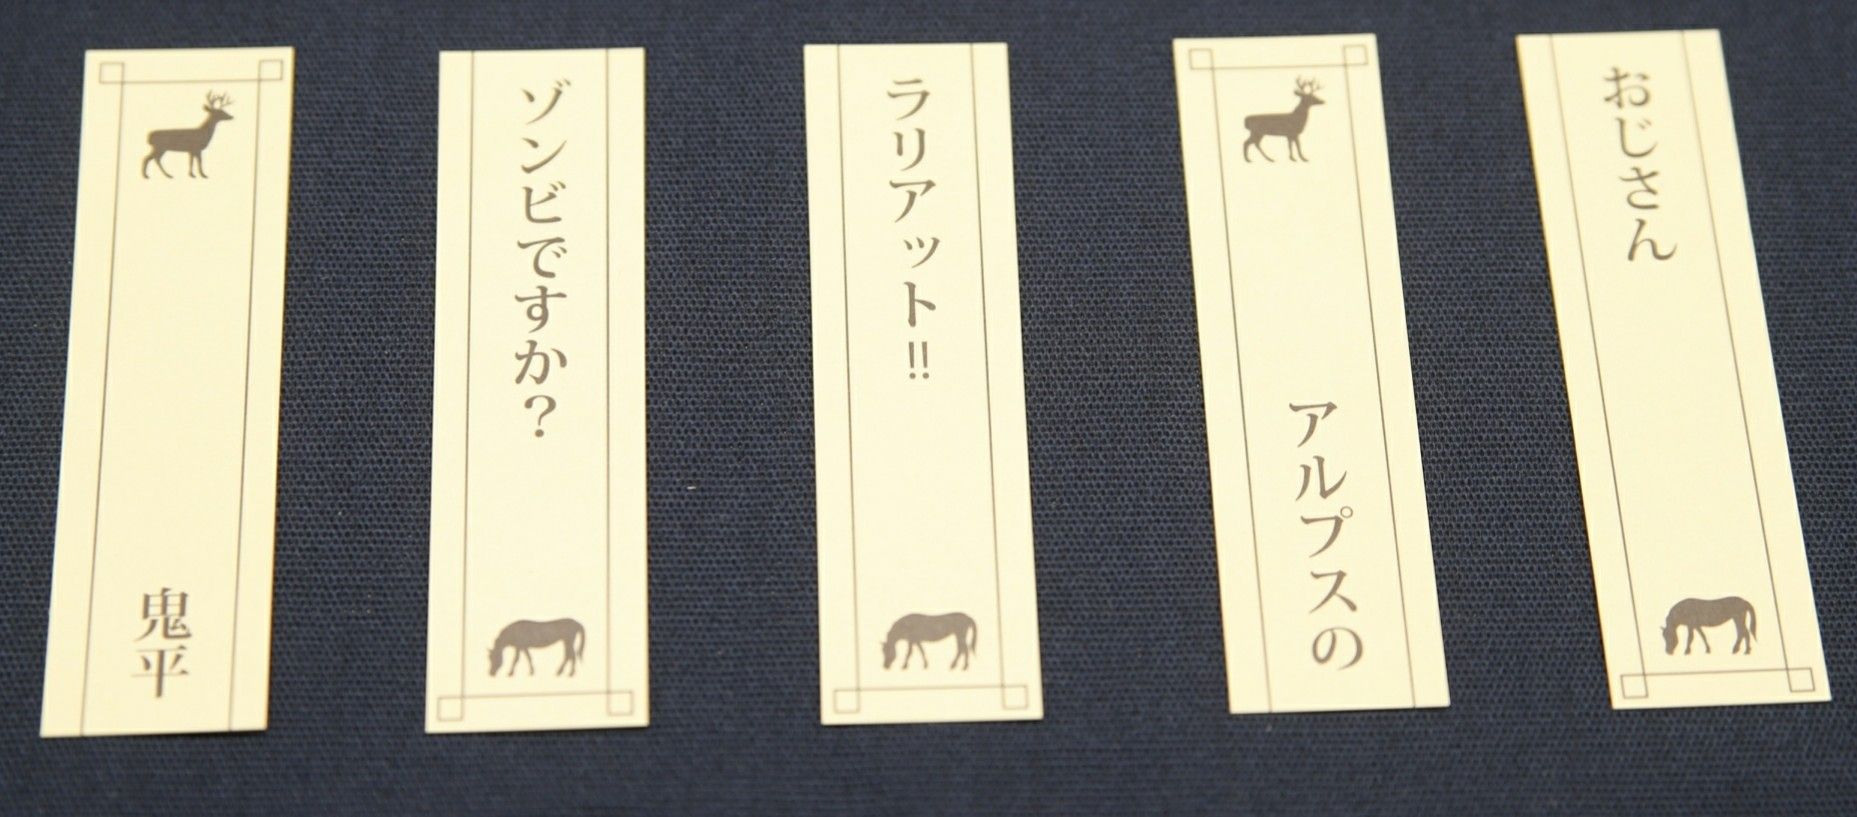 鬼平
ゾンビですか?
ラリアット!!
アルプスの
おじさん